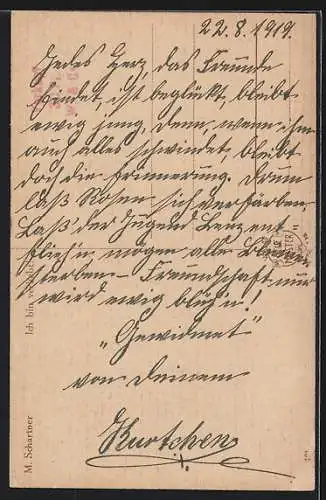 22.8.1919.
Jedes Herz, das Freunde
findet, ist beglückt, bleibt
ewig jung, denn, wenn ihm
auch alles schwindet, bleibt
doch die Erinnerung. Drum
laß Rosen sich verfärben,
Laß' der Jugend Lenz ent
flieh'n, mögen alle Blumen
sterben – Freundschaft nur
wird ewig blüh'n!
"Gewidmet"
von Deinem
Kurtchen
M. Schartner
Ich bin